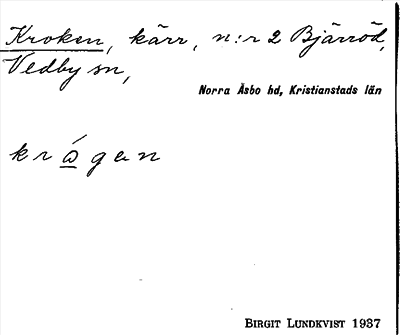 Kroken, kärr, n:r 2 Bjärröd,
Vedby sn,
Norra Åsbo hd, Kristianstads län
krɷ́gən
BIRGIT LUNDKVIST 1937